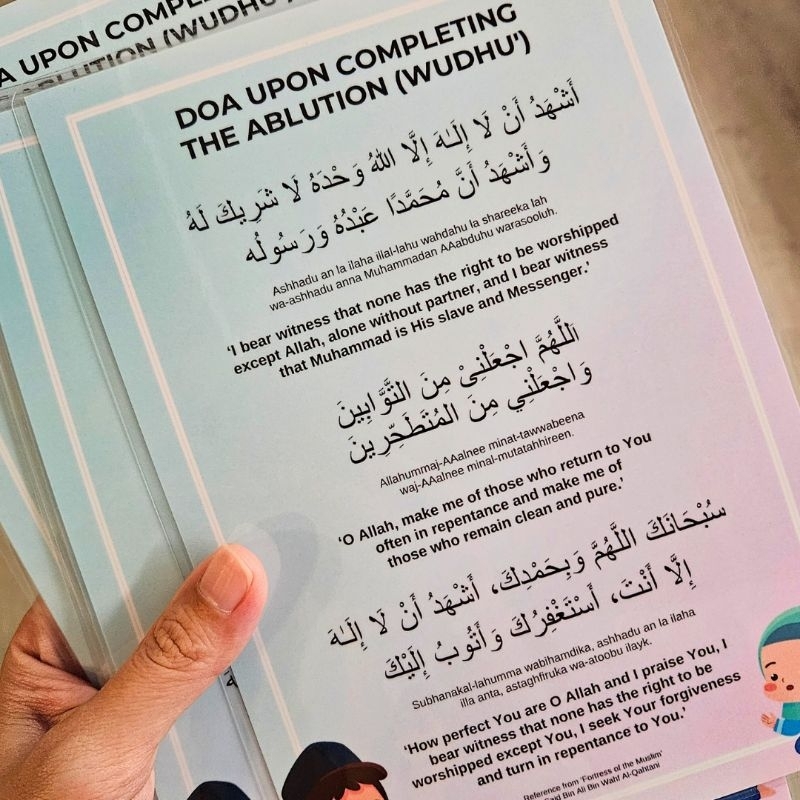 A UPON COMPL
ABLUTION (WUDHU')
DOA UPON COMPLETING
THE ABLUTION (WUDHU')
أَشْهَدُ أَنْ لَا إِلَـٰهَ إِلَّا اللهُ وَحْدَهُ لَا شَرِيكَ لَهُ
وَأَشْهَدُ أَنَّ مُحَمَّدًا عَبْدُهُ وَرَسُولُه
Ashhadu an la ilaha illal-lahu wahdahu la shareeka lah
wa-ashhadu anna Muhammadan AAabduhu warasooluh.
‘I bear witness that none has the right to be worshipped
except Allah, alone without partner, and I bear witness
that Muhammad is His slave and Messenger.’
اَللَّهُمَّ اجْعَلْنِىْ مِنَ التَّوَّابِينَ
وَاجْعَلْنِي مِنَ المُتَطَهِّرِينَ
Allahummaj-AAalnee minat-tawwabeena
waj-AAalnee minal-mutatahhireen.
‘O Allah, make me of those who return to You
often in repentance and make me of
those who remain clean and pure.’
سُبْحَانَكَ اللَّهُمَّ وَبِحَمْدِكَ، أَشْهَدُ أَنْ لَا إِلَـٰهَ
إِلَّا أَنْتَ، أَسْتَغْفِرُكَ وَأَتُوبُ إِلَيْكَ
Subhanakal-lahumma wabihamdika, ashhadu an la ilaha
illa anta, astaghfiruka wa-atoobu ilayk.
‘How perfect You are O Allah and I praise You, I
bear witness that none has the right to be
worshipped except You, I seek Your forgiveness
and turn in repentance to You.’
Reference from 'Fortress of the Muslim'
Said Bin Ali Bin Wahf Al-Qahtani